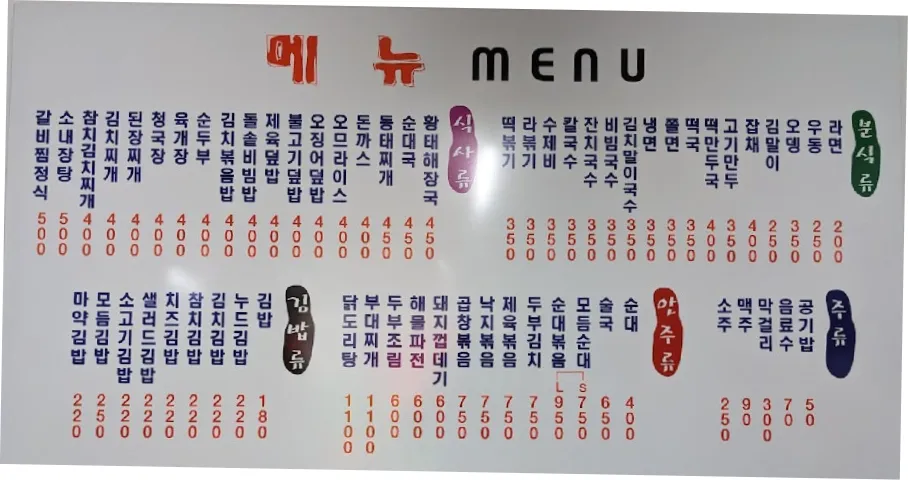 메뉴 MENU
분식류
라면 200
우동 250
오뎅 350
김말이 250
잡채 400
고기만두 350
떡만두국 400
떡국 350
쫄면 350
냉면 350
김치말이국수 350
비빔국수 350
잔치국수 350
칼국수 350
수제비 350
라볶기 350
떡볶기 350
식사류
황태해장국 450
순대국 450
동태찌개 400
돈까스 400
오므라이스 400
오징어덮밥 400
불고기덮밥 400
제육덮밥 400
돌솥비빔밥 400
김치볶음밥 400
순두부 400
육개장 400
청국장 400
된장찌개 400
김치찌개 400
참치김치찌개 400
소내장탕 500
갈비찜정식 500
주류
공기밥 50
음료수 70
막걸리 300
맥주 90
소주 250
안주류
순대 400
술국 650
모듬순대 S 750
순대볶음 L 950
두부김치 750
제육볶음 750
낙지볶음 750
곱창볶음 750
돼지껍데기 600
해물파전 600
두부조림 600
부대찌개 1100
닭도리탕 1100
김밥류
김밥 180
누드김밥 220
김치김밥 220
참치김밥 220
치즈김밥 220
샐러드김밥 220
소고기김밥 220
모듬김밥 250
마약김밥 220